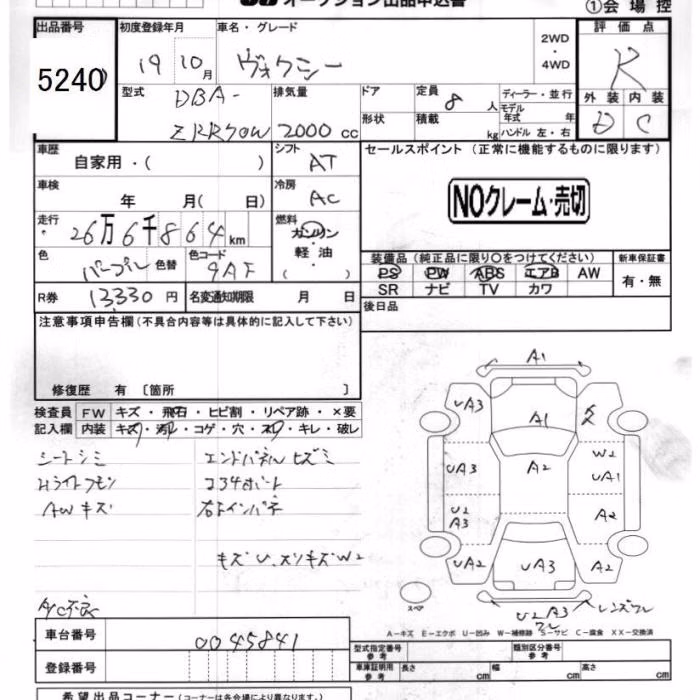 オークション出品申込書
①会場控
出品番号
5240
初度登録年月
19 10月
車名・グレード
ヴォクシー
2WD
・
4WD
評価点
R
外装 内装
D C
型式
DBA-
ZRR70W
排気量
2000 cc
ドア
形状
定員
8 人
積載
kg
ディーラー・並行
モデル
年式 年
ハンドル 左・右
車歴
自家用・( )
シフト
AT
セールスポイント (正常に機能するものに限ります)
NOクレーム・売切
車検
年 月( 日)
冷房
AC
走行
26万6千864km
燃料
ガソリン
軽油
( )
色
パープル
色替
色コード
9AF
装備品(純正品に限り○をつけてください)
PS PW ABS エアB AW
SR ナビ TV カワ
新車保証書
有・無
R券
13330円
名変通知期限 月 日
後日品
注意事項申告欄(不具合内容等は具体的に記入して下さい)
修復歴 有 〔箇所 〕
検査員
記入欄
FW キズ・飛石・ヒビ割・リペア跡・×要
内装 キズ・汚れ・コゲ・穴・スレ・キレ・破レ
シートシミ
Hライトクモリ
AWキズ
エンドパネルヒズミ
コアサポート
右インパネ
キズU、スリキズW2
A/C不良
A1
UA3
A1
W2
UA3
A2
UA1
U2
A3
A2
UA2
UA3
A2
U2 A3
ワレ
レンズワレ
スペア
A-キズ E-エクボ U-凹み W-補修跡 S-サビ C-腐食 XX-交換済
車台番号
0045841
登録番号
型式指定番号
参考
類別区分番号
参考
車庫証明用
参考
長さ cm
幅 cm
高さ cm
希望出品コーナー(コーナーは各会場により異なります。)